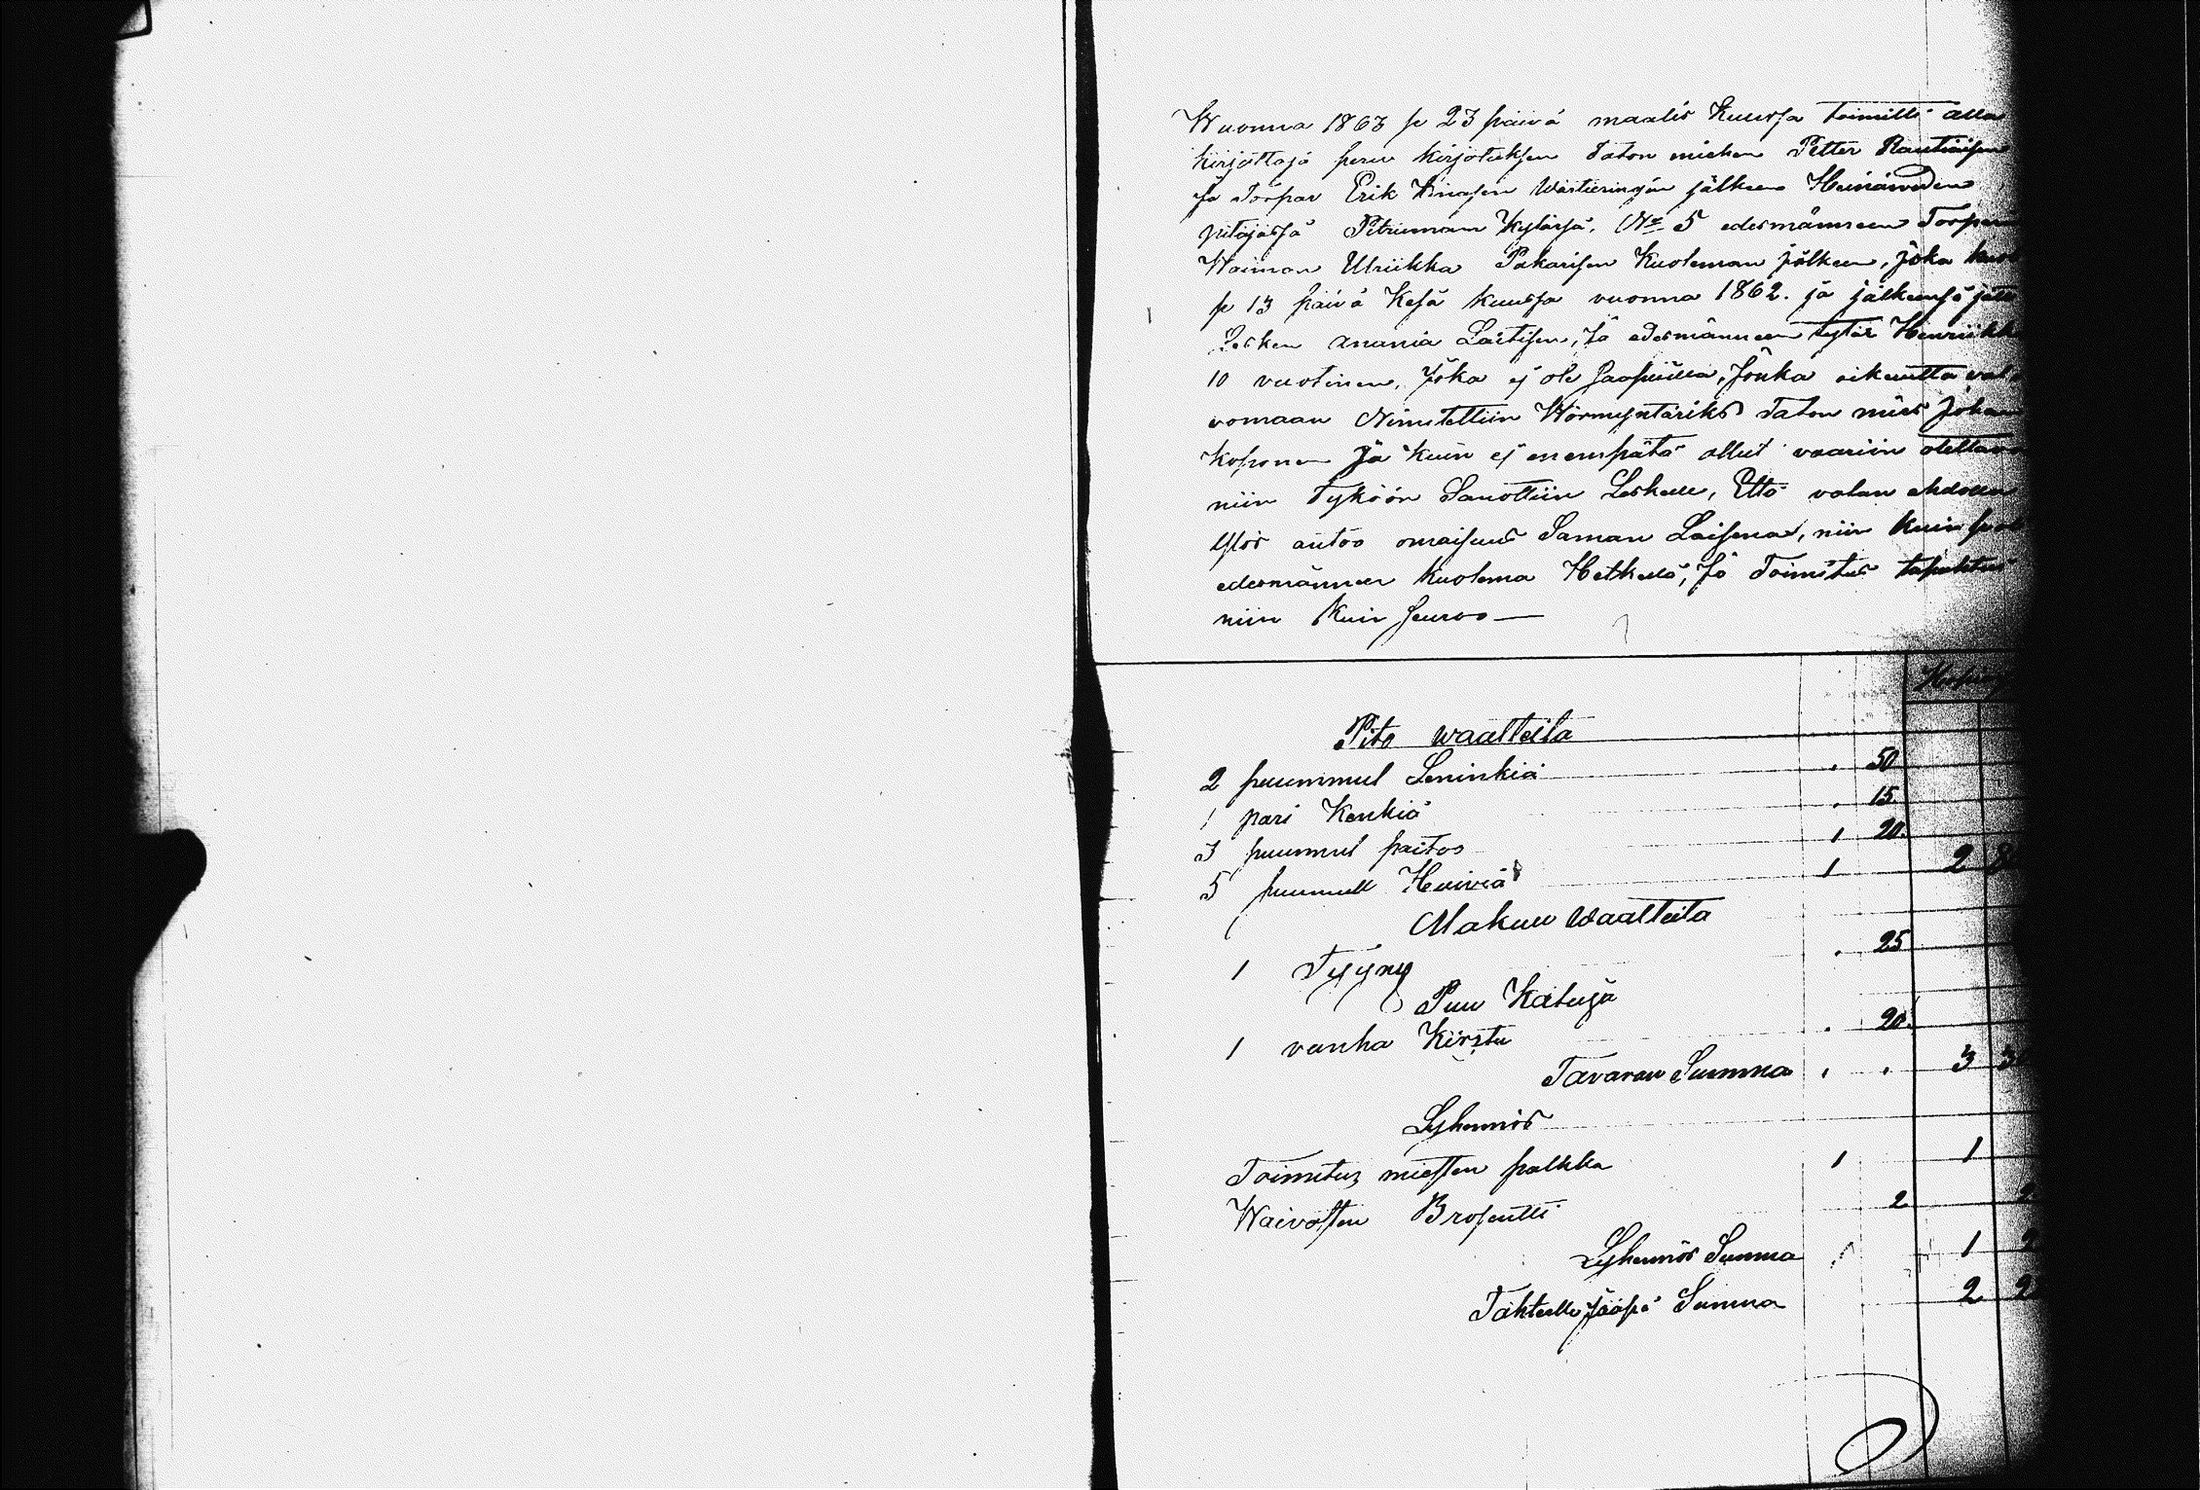 Wuonna 1863 p 23 päivä maalis Kuussa toimitti alla
kirjottaja peru kirjotuksen Talon miehen Petter Rautiaisen
ja Torpar Erik jälkeen Heinäweden
pitäjässä Petruman Kylässä, No 5 edesmänneen Torpari
Waimon Ulriikka Pakarisen Kuoleman jälkeen, joka kuol
p 13 päivä Kesä kuussa vuonna 1862. ja jälkeensä jätti
Lesken anania Laitisen, ja edesmänneen tytär Henriikka
10 vuotinen, joka ej ole saapuilla, Jonka oikeutta val
vomaan Nimitettiin Wörmyntäriks Talon mies Johan
Koponen Ja kuin ej enempätä ollut vaariin otettava
niin Tyköön Sanottiin Leskelle, Että valan ehdolla
Ylös antoo omaisuus Saman Laisena, niin kuin
edesmänneen kuolema Hetkellä, ja Toimitus tapahtui
niin kuin seuroo —
Pito waatteita
2 puummul Leninkiä . 50
1 pari Kenkiä . 15
3 puummul paitoo 1 20.
5 puumull Huivia 1 2 8
Makuu waatteita
1 Tyyny . 25
Puu Kaluja
1 vanha Kirstu . 20.
Tavaran Summa . . 3 3
Lyhennös
Toimitus miesten palkka 1 1
Waivasten Prosentti 2 2
Lyhennös Summa 1 2
Tähteelle jääpä Summa 2 2